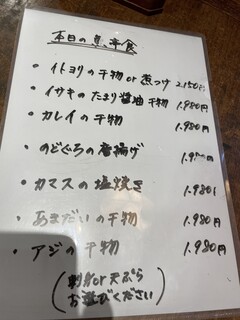 本日の魚定食
・イトヨリの干物or煮つけ 2,150円
・イサキのたまり醤油干物 1,980円
・カレイの干物 1,980円
・のどぐろの唐揚げ
・カマスの塩焼き 1,980円
・あまだいの干物 1,980円
・アジの干物 1,980円
(刺身or天ぷら
お選びください)